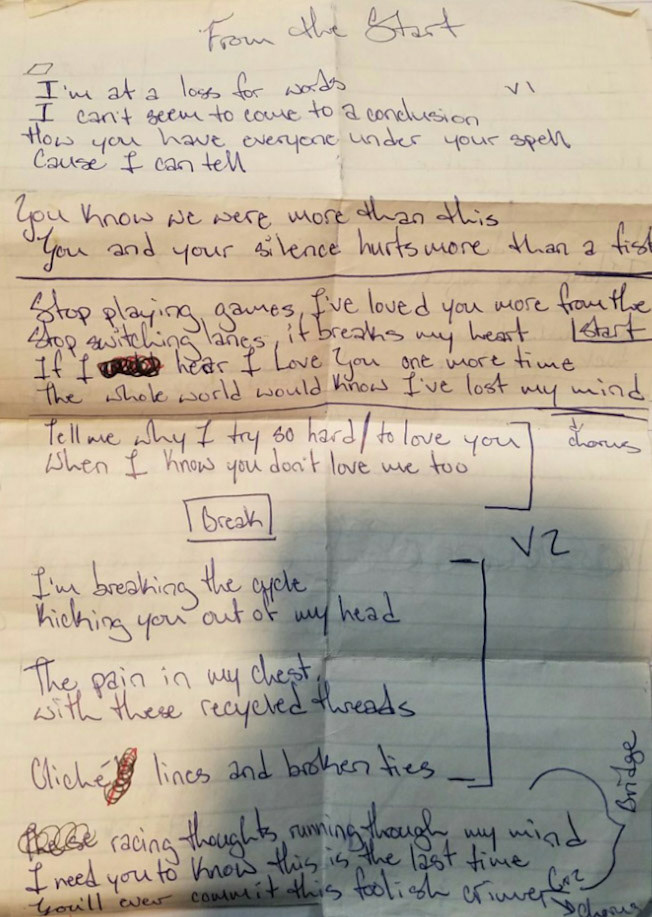 From the Start
I'm at a loss for words V1
I can't seem to come to a conclusion
How you have everyone under your spell
Cause I can tell
You know we were more than this
You and your silence hurts more than a fist
Stop playing games, I've loved you more from the
Stop switching lanes, it breaks my heart start
If I hear I Love You one more time
The whole world would know I've lost my mind
chorus
Tell me why I try so hard / to love you
When I know you don't love me too
Break
V2
I'm breaking the cycle
Kicking you out of my head
The pain in my chest,
with these recycled threads
Cliché lines and broken ties
Bridge
racing thoughts running though my mind
I need you to know this is the last time
You'll ever commit this foolish crime
chorus